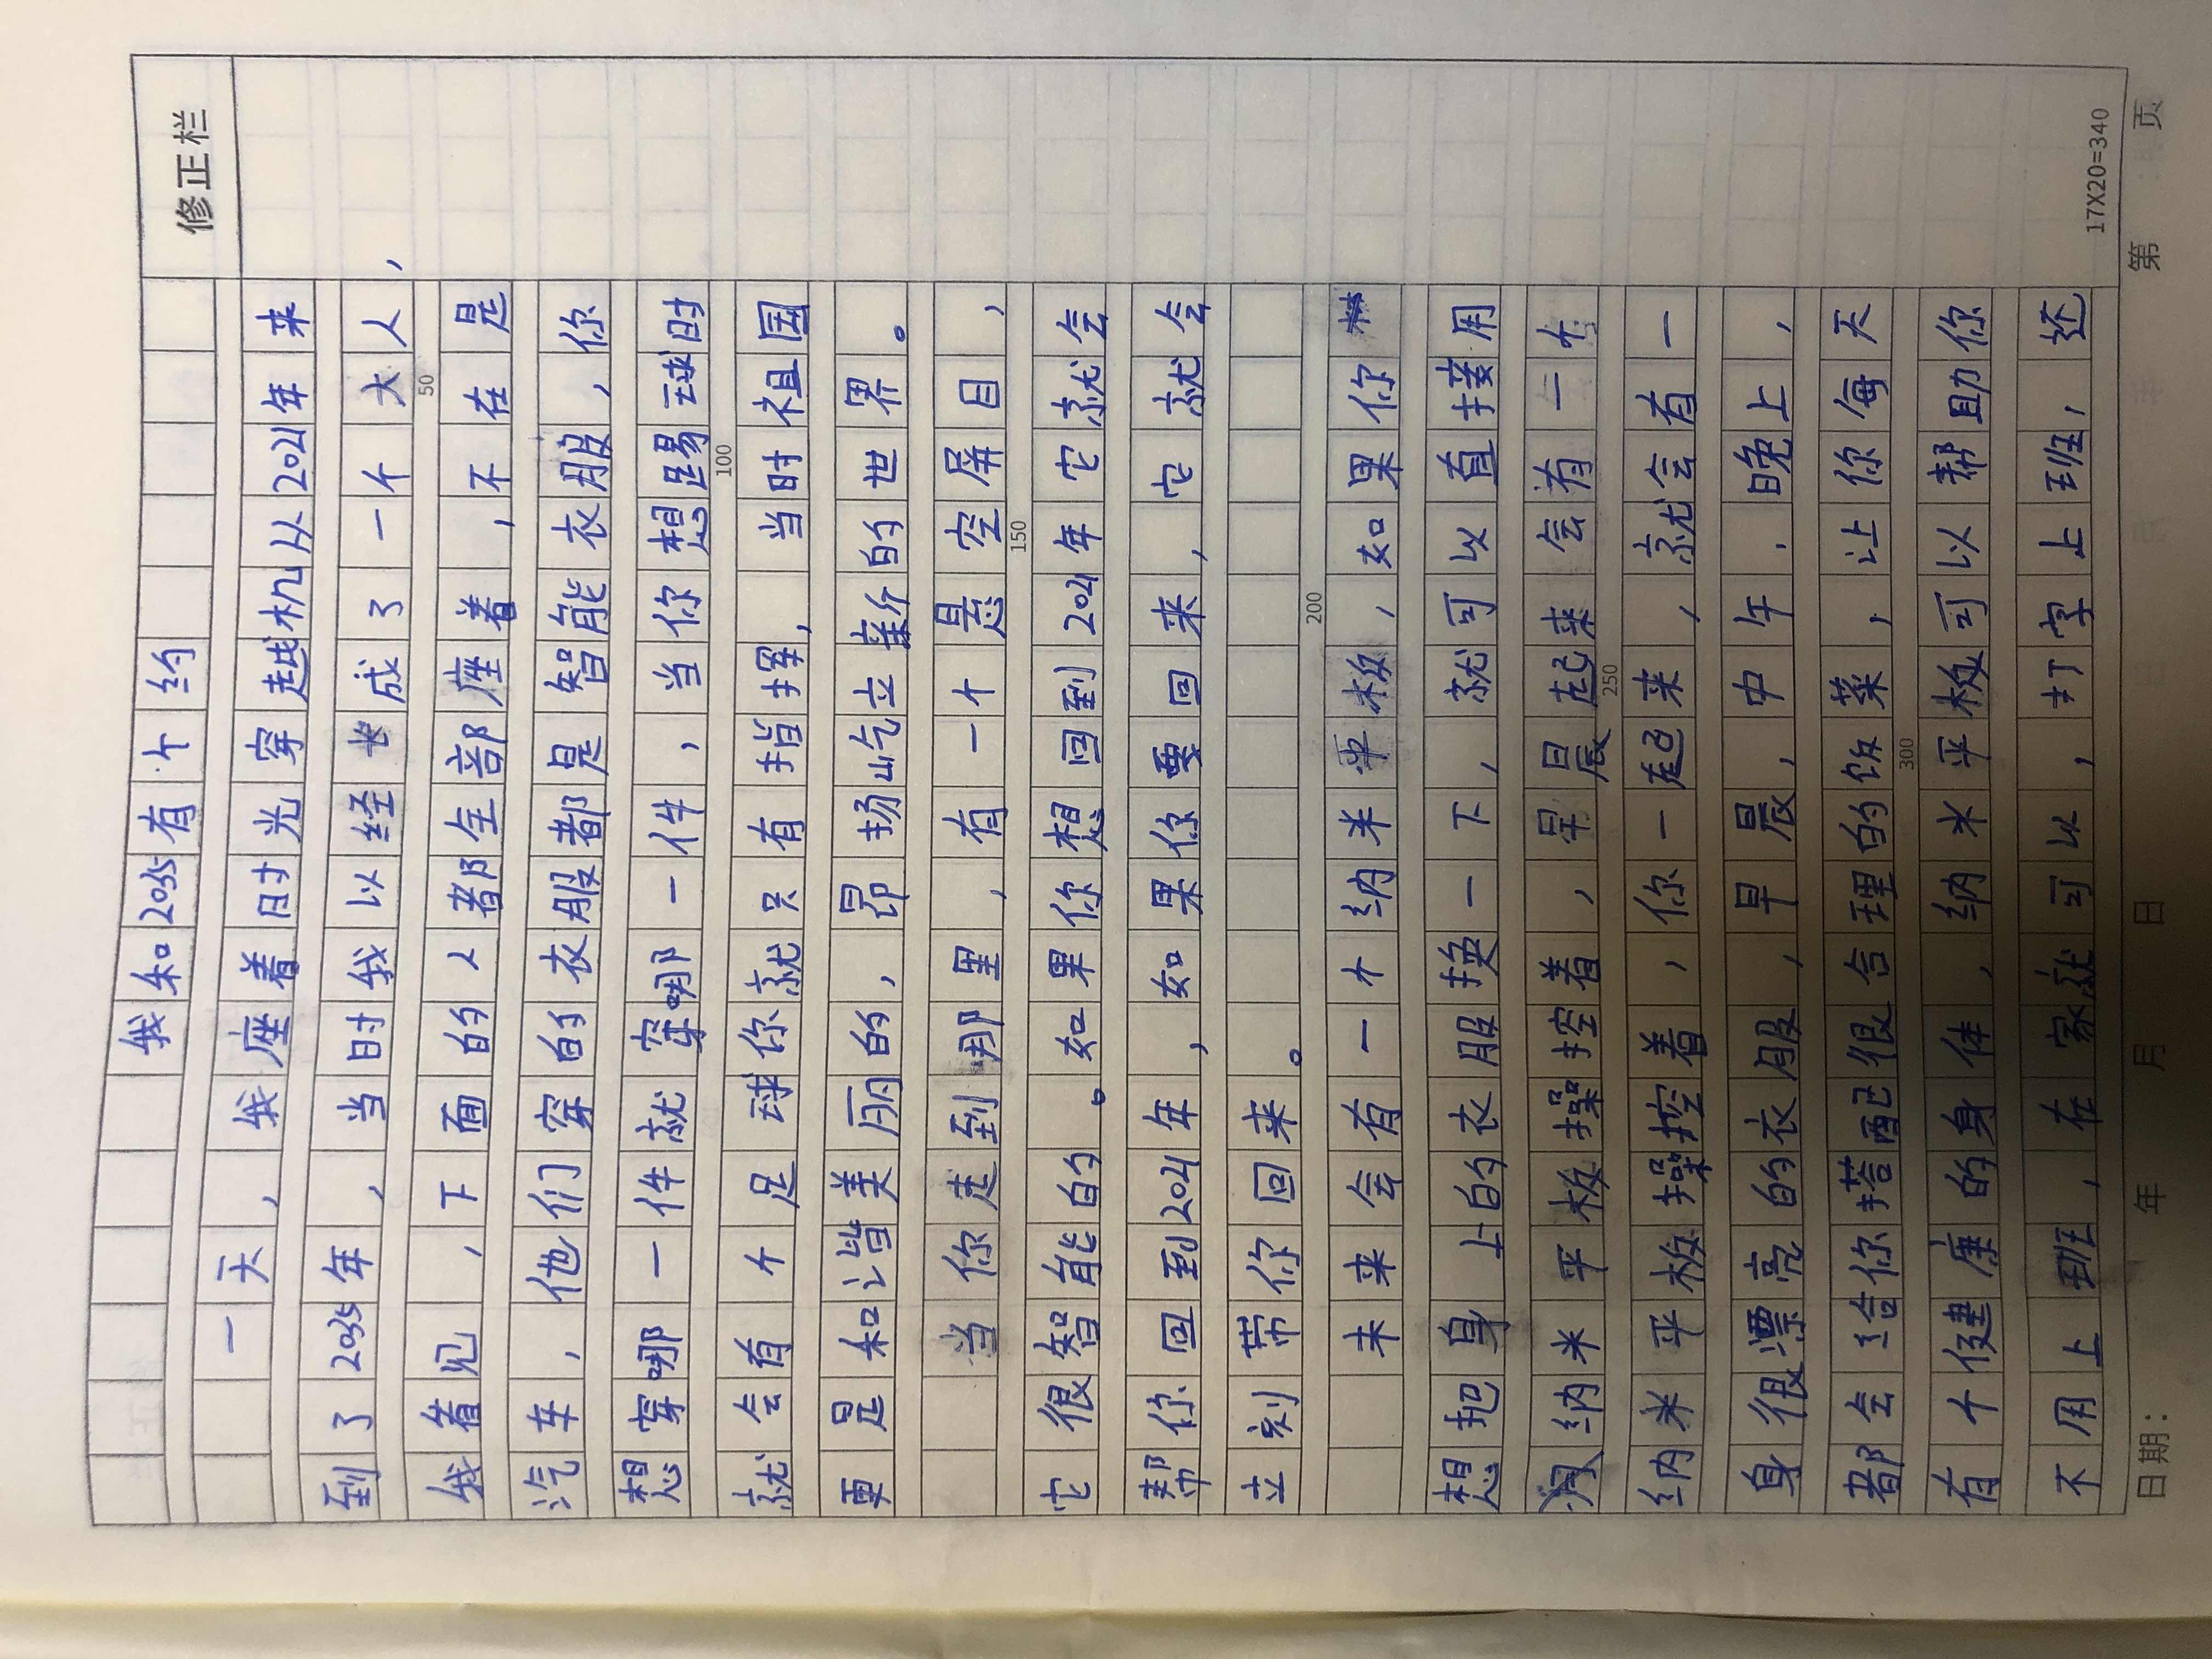 修正栏
我和2035有个约
一天，我座着时光穿越机从2021年来
到了2035年，当时我以经长成了一个大人，
我看见，下面的人都全部座着，不在是
汽车，他们穿的衣服都是智能衣服，你
想穿哪一件就穿哪一件，当你想踢球时
就会有个足球你就只有指挥，当时祖国
更是和谐美丽的，昂扬屹立新的世界。
当你走到那里，有一个悬空屏目，
它很智能的。如果你想回到2021年它就会
帮你回到2021年，如果你要回来，它就会
立刻带你回来。
未来会有一个纳米平板，如果你
想把身上的衣服换一下，就可以直接用
用纳米平板操控着，早晨起来会有一个
纳米平板操控着，你一起来，就会有一
身很漂亮的衣服，早晨，中午．晚上，
都会给你搭配很合理的饭菜，让你每天
有个健康的身体，纳米平板可以帮助你
不用上班，在家就可以，打字上班，还
50
100
150
200
250
300
17X20=340
日期： 年 月 日 第 页